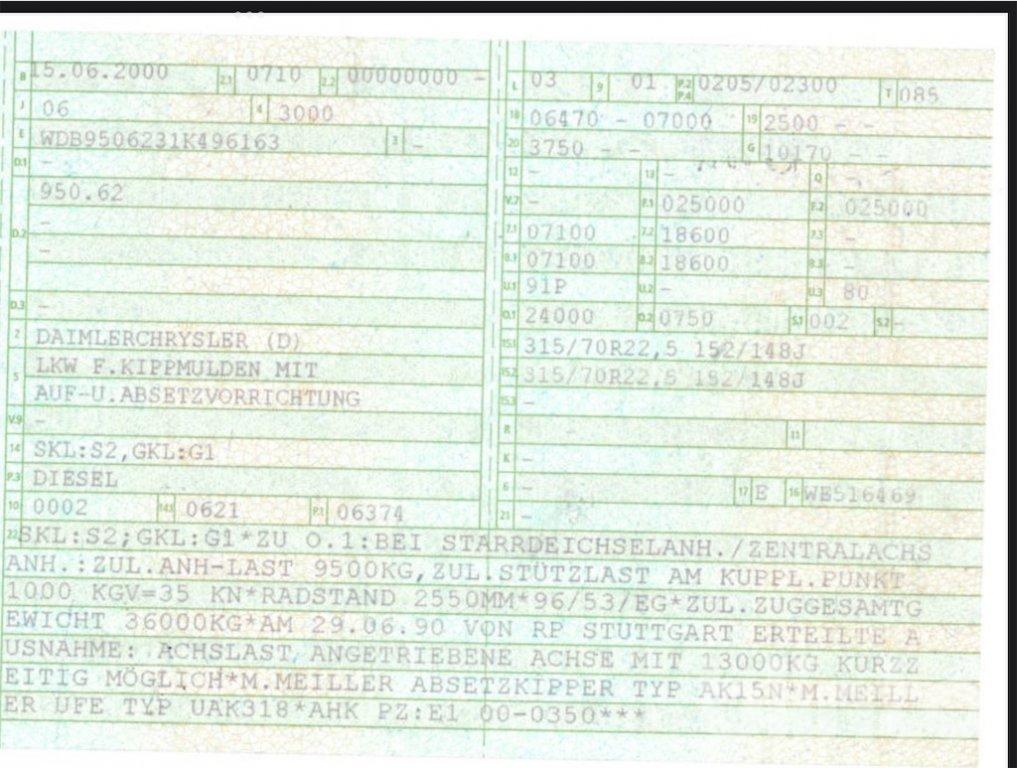 B 15.06.2000 2.1 0710 2.2 00000000 -
J 06 4 3000
E WDB9506231K496163 3 -
D.1 -
950.62
D.2 -
-
D.3 -
2 DAIMLERCHRYSLER (D)
5 LKW F.KIPPMULDEN MIT
AUF-U.ABSETZVORRICHTUNG
V.9 -
14 SKL:S2,GKL:G1
P.3 DIESEL
10 0002 14.1 0621 P.1 06374
L 03 9 01 P.2 P.4 0205/02300 T 085
18 06470 - 07000 19 2500 - -
20 3750 - - G 10170 - -
12 - 13 - Q -
V.7 - F.1 025000 F.2 025000
7.1 07100 7.2 18600 7.3 -
8.1 07100 8.2 18600 8.3 -
U.1 91P U.2 - U.3 80
O.1 24000 O.2 0750 S.1 002 S.2 -
15.1 315/70R22,5 152/148J
15.2 315/70R22,5 152/148J
15.3 -
R 11
K -
6 - 17 E 16 WE516469
21 -
22 SKL:S2;GKL:G1*ZU O.1:BEI STARRDEICHSELANH./ZENTRALACHS
ANH.:ZUL.ANH-LAST 9500KG,ZUL.STÜTZLAST AM KUPPL.PUNKT
1000 KGV=35 KN*RADSTAND 2550MM*96/53/EG*ZUL.ZUGGESAMTG
EWICHT 36000KG*AM 29.06.90 VON RP STUTTGART ERTEILTE A
USNAHME: ACHSLAST ANGETRIEBENE ACHSE MIT 13000KG KURZZ
EITIG MÖGLICH*M.MEILLER ABSETZKIPPER TYP AK15N*M.MEILL
ER UFE TYP UAK318*AHK PZ:E1 00-0350***